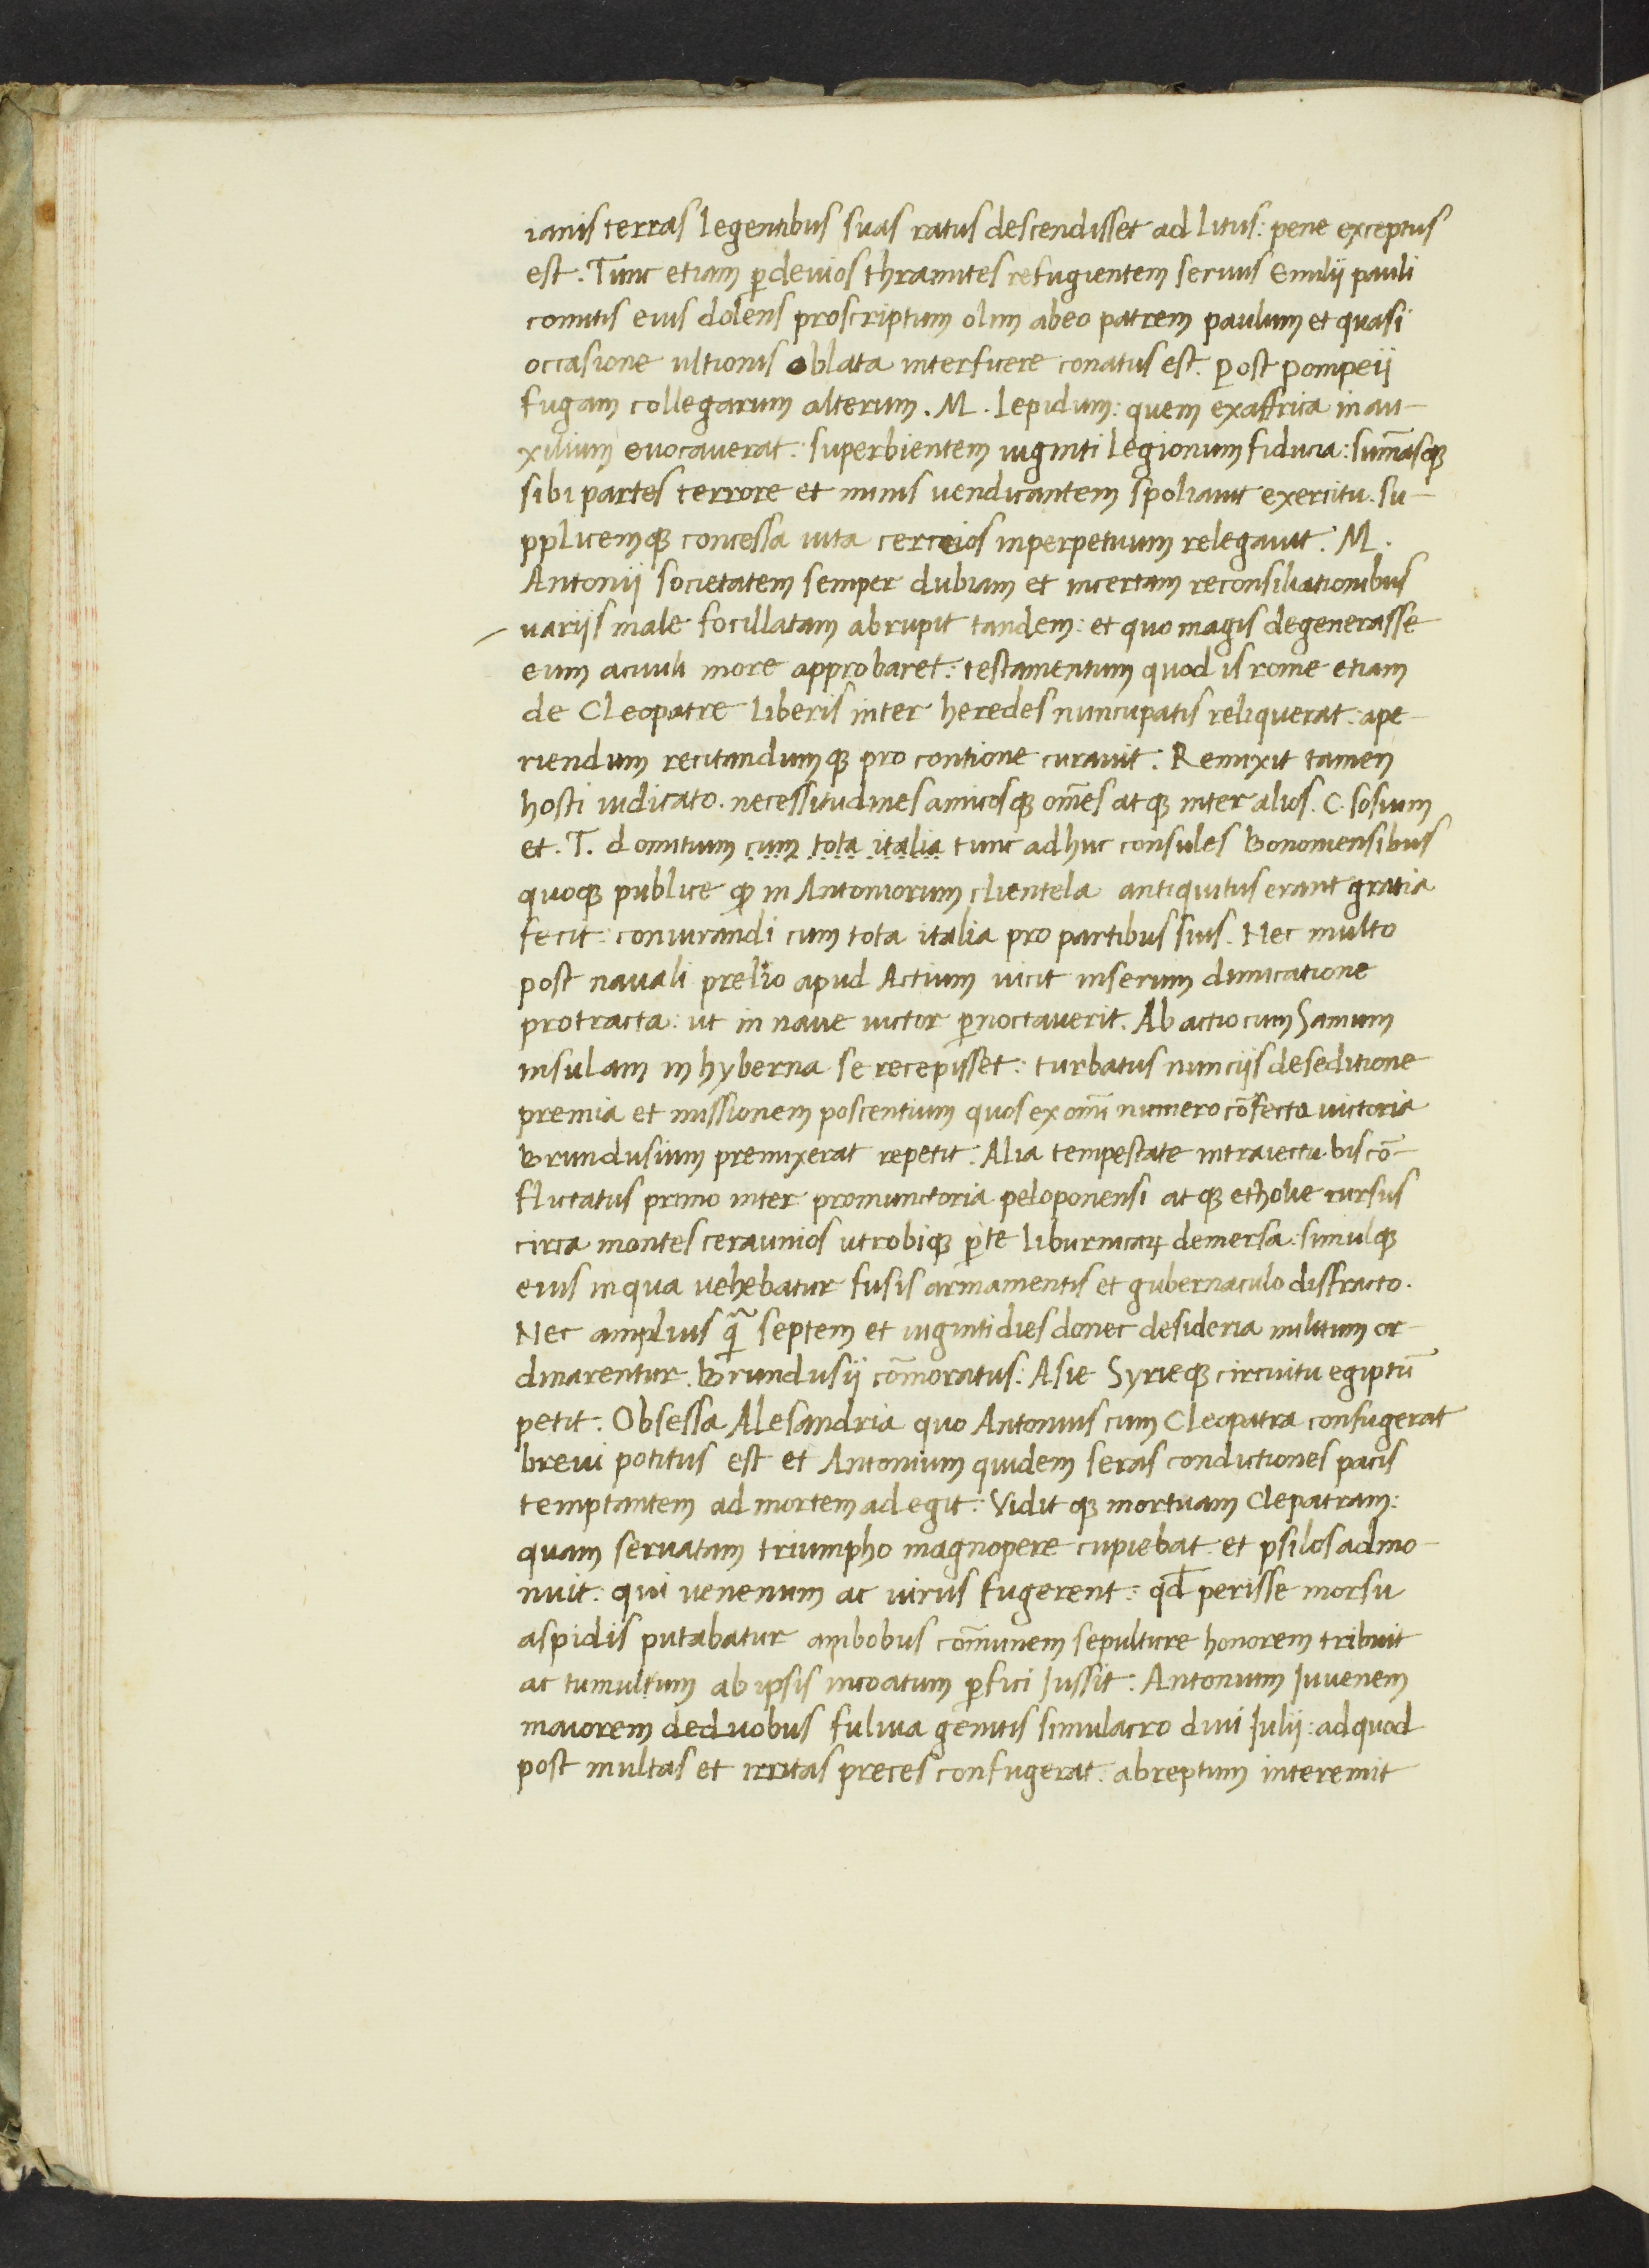 ianis terras legentibus suas ratus descendisset ad litus: pene exceptus
est. Tunc etiam ꝑ deuios thramites refugientem seruus Emilij pauli
comitis eius dolens proscriptum olim abeo patrem paulum et quasi
occasione ultionis oblata interficere conatus est. post pompeij
fugam collegarum alterum. M. lepidum: quem exaffrica in au-
xilium euocauerat: superbientem uiginti legionum fiducia: sum̄asqꝫ
sibi partes terrore et minis uendicantem spoliauit exercitu. su-
pplicemqꝫ concessa uita cerceios inperpetuum relegauit. M.
Antonij societatem semper dubiam et incertam reconsiliationibus
uarijs male focillatam abrupit tandem: et quo magis degenerasse
eum aciuili more approbaret: testamentum quod is rome etiam
de Cleopatre liberis inter heredes nuncupatis reliquerat: ape-
riendum recitandumqꝫ pro contione curauit: Remixit tamen
hosti iudicato. necessitudines amicosqꝫ om̄es atqꝫ inter alios. C. sosium
et. T. domitium cum tota italia tunc adhuc consules Bononiensibus
quoqꝫ publice ꝙ in Antoniorum clientela antiquitus erant gratia
fecit: coniurandi cum tota italia pro partibus suis. Nec multo
post nauali prelio apud Actium uicit inserum dimicatione
protracta: ut in naue uictor ꝑnoctauerit. Ab actio cum Samum
insulam in hyberna se recepisset: turbatus nuncijs deseditione
premia et missionem poscentium quos ex om̄i numero cōfecta uictoria
Brundusium premixerat repetit: Alia tempestate intraiectu bis cō-
flictatus primo inter promunctoria peloponensi atqꝫ etholie rursus
circa montes ceraunios utrobiqꝫ ꝑte liburnicaꝝ demersa: simulqꝫ
eius in qua uehebatur fusis armamentis et gubernaculo diffracto.
Nec amplius q̄ septem et uiginti dies donec desideria militum or-
dinarentur. Brundusij cōmoratus: Asie Syrieqꝫ circuitu egiptū
petit: Obsessa Alesandria quo Antonius cum Cleopatra confugerat
breui potitus est et Antonium quidem seras conductiones pacis
temptantem ad mortem adegit: Vidit qꝫ mortuam Clepatram:
quam seruatam triumpho magnopere cupiebat: et psilos admo-
nuit: qui uenenum ac uirus fugerent: qd̄ perisse morsu
aspidis putabatur ambobus com̄unem sepulture honorem tribuit
ac tumultum ab ipsis incoatum ꝑfici Jussit: Antonium Juuenem
maiorem deduobus fuluia genitis simulacro diui Julij: adquod
post multas et irritas preces confugerat: abreptum interemit